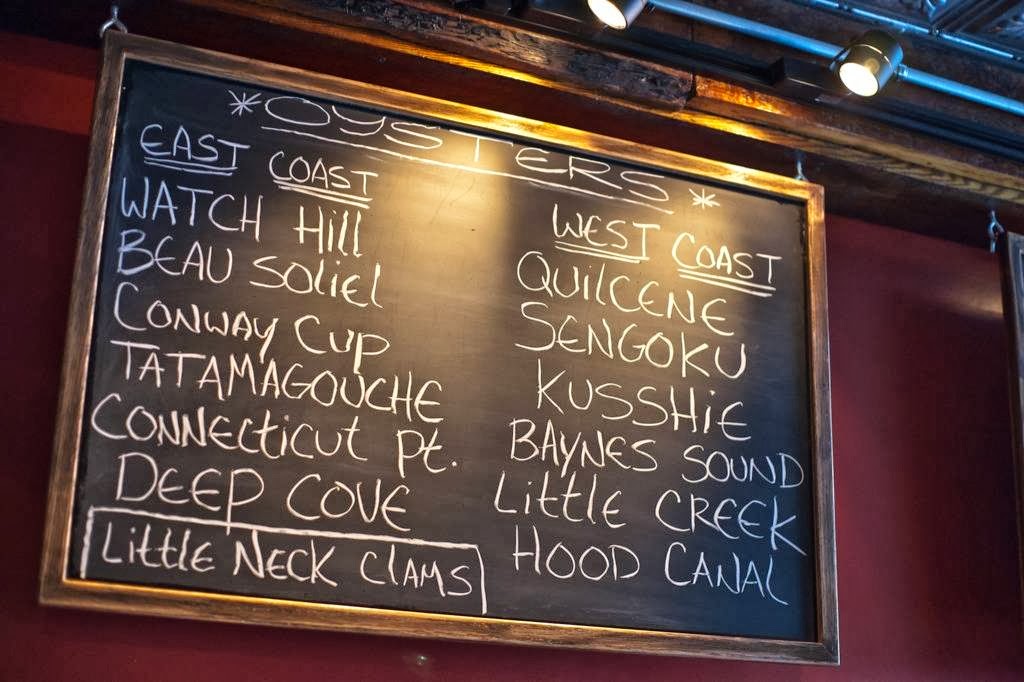 *OYSTERS*
EAST COAST
WATCH Hill
BEAU Soliel
CONWAY Cup
TATAMAGOUCHE
CONNECticut Pt.
DEEP COVE
Little NECK ClAMS
WEST COAST
QUilCENE
SENGOKU
KUSSHiE
BAYNES SOUND
Little CREEK
HOOD CANAL